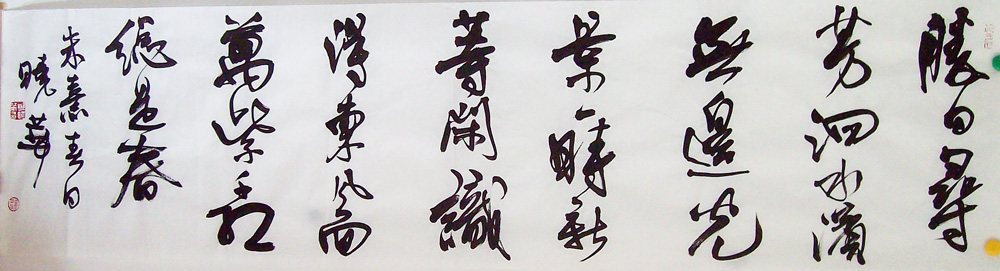 勝日尋
芳泗水濱
無邊光
景一時新
等閑識
得東風面
萬紫千紅
總是春
朱熹春日
曉華